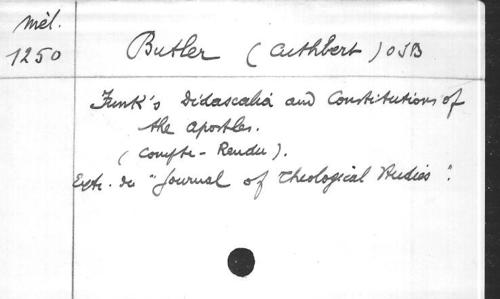 Mél.
1250
Butler (Cuthbert) OSB
Funk's Didascalia and Constitutions of
the apostles.
(Compte-Rendu).
Extr. du "Journal of Theological Studies".